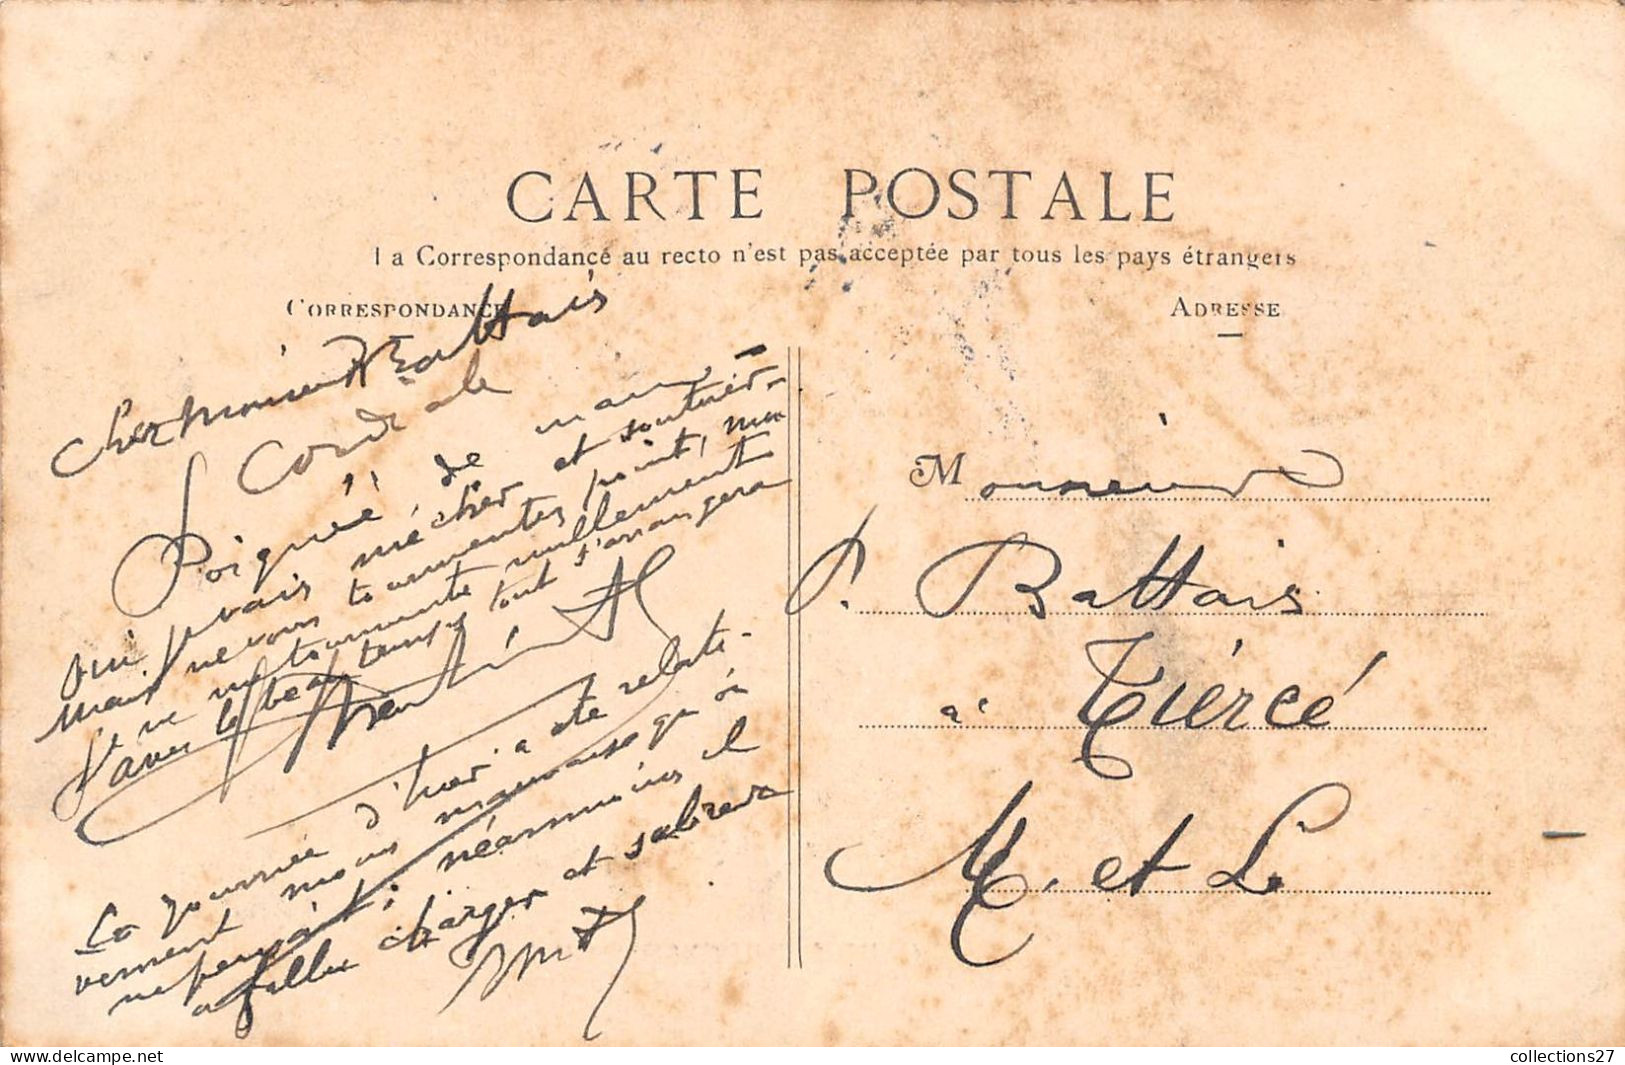 CARTE POSTALE
La Correspondance au recto n'est pas acceptée par tous les pays étrangers
CORRESPONDANCE
ADRESSE
Cher Monsieur Battais
Cordiale
Poignée de main
oui je vais mécher et soutirer
mais ne vous tourmentez point, moi
je ne me tourmente nullement
avec le beau temps tout s'arrangera
La journée d'hier a été relati-
vement moins mauvaise qu'on
ne pensait; néanmoins il
a fallu charger et sabrer
Monsieur
P. Battais
à Tiercé
M. et L.
collections27